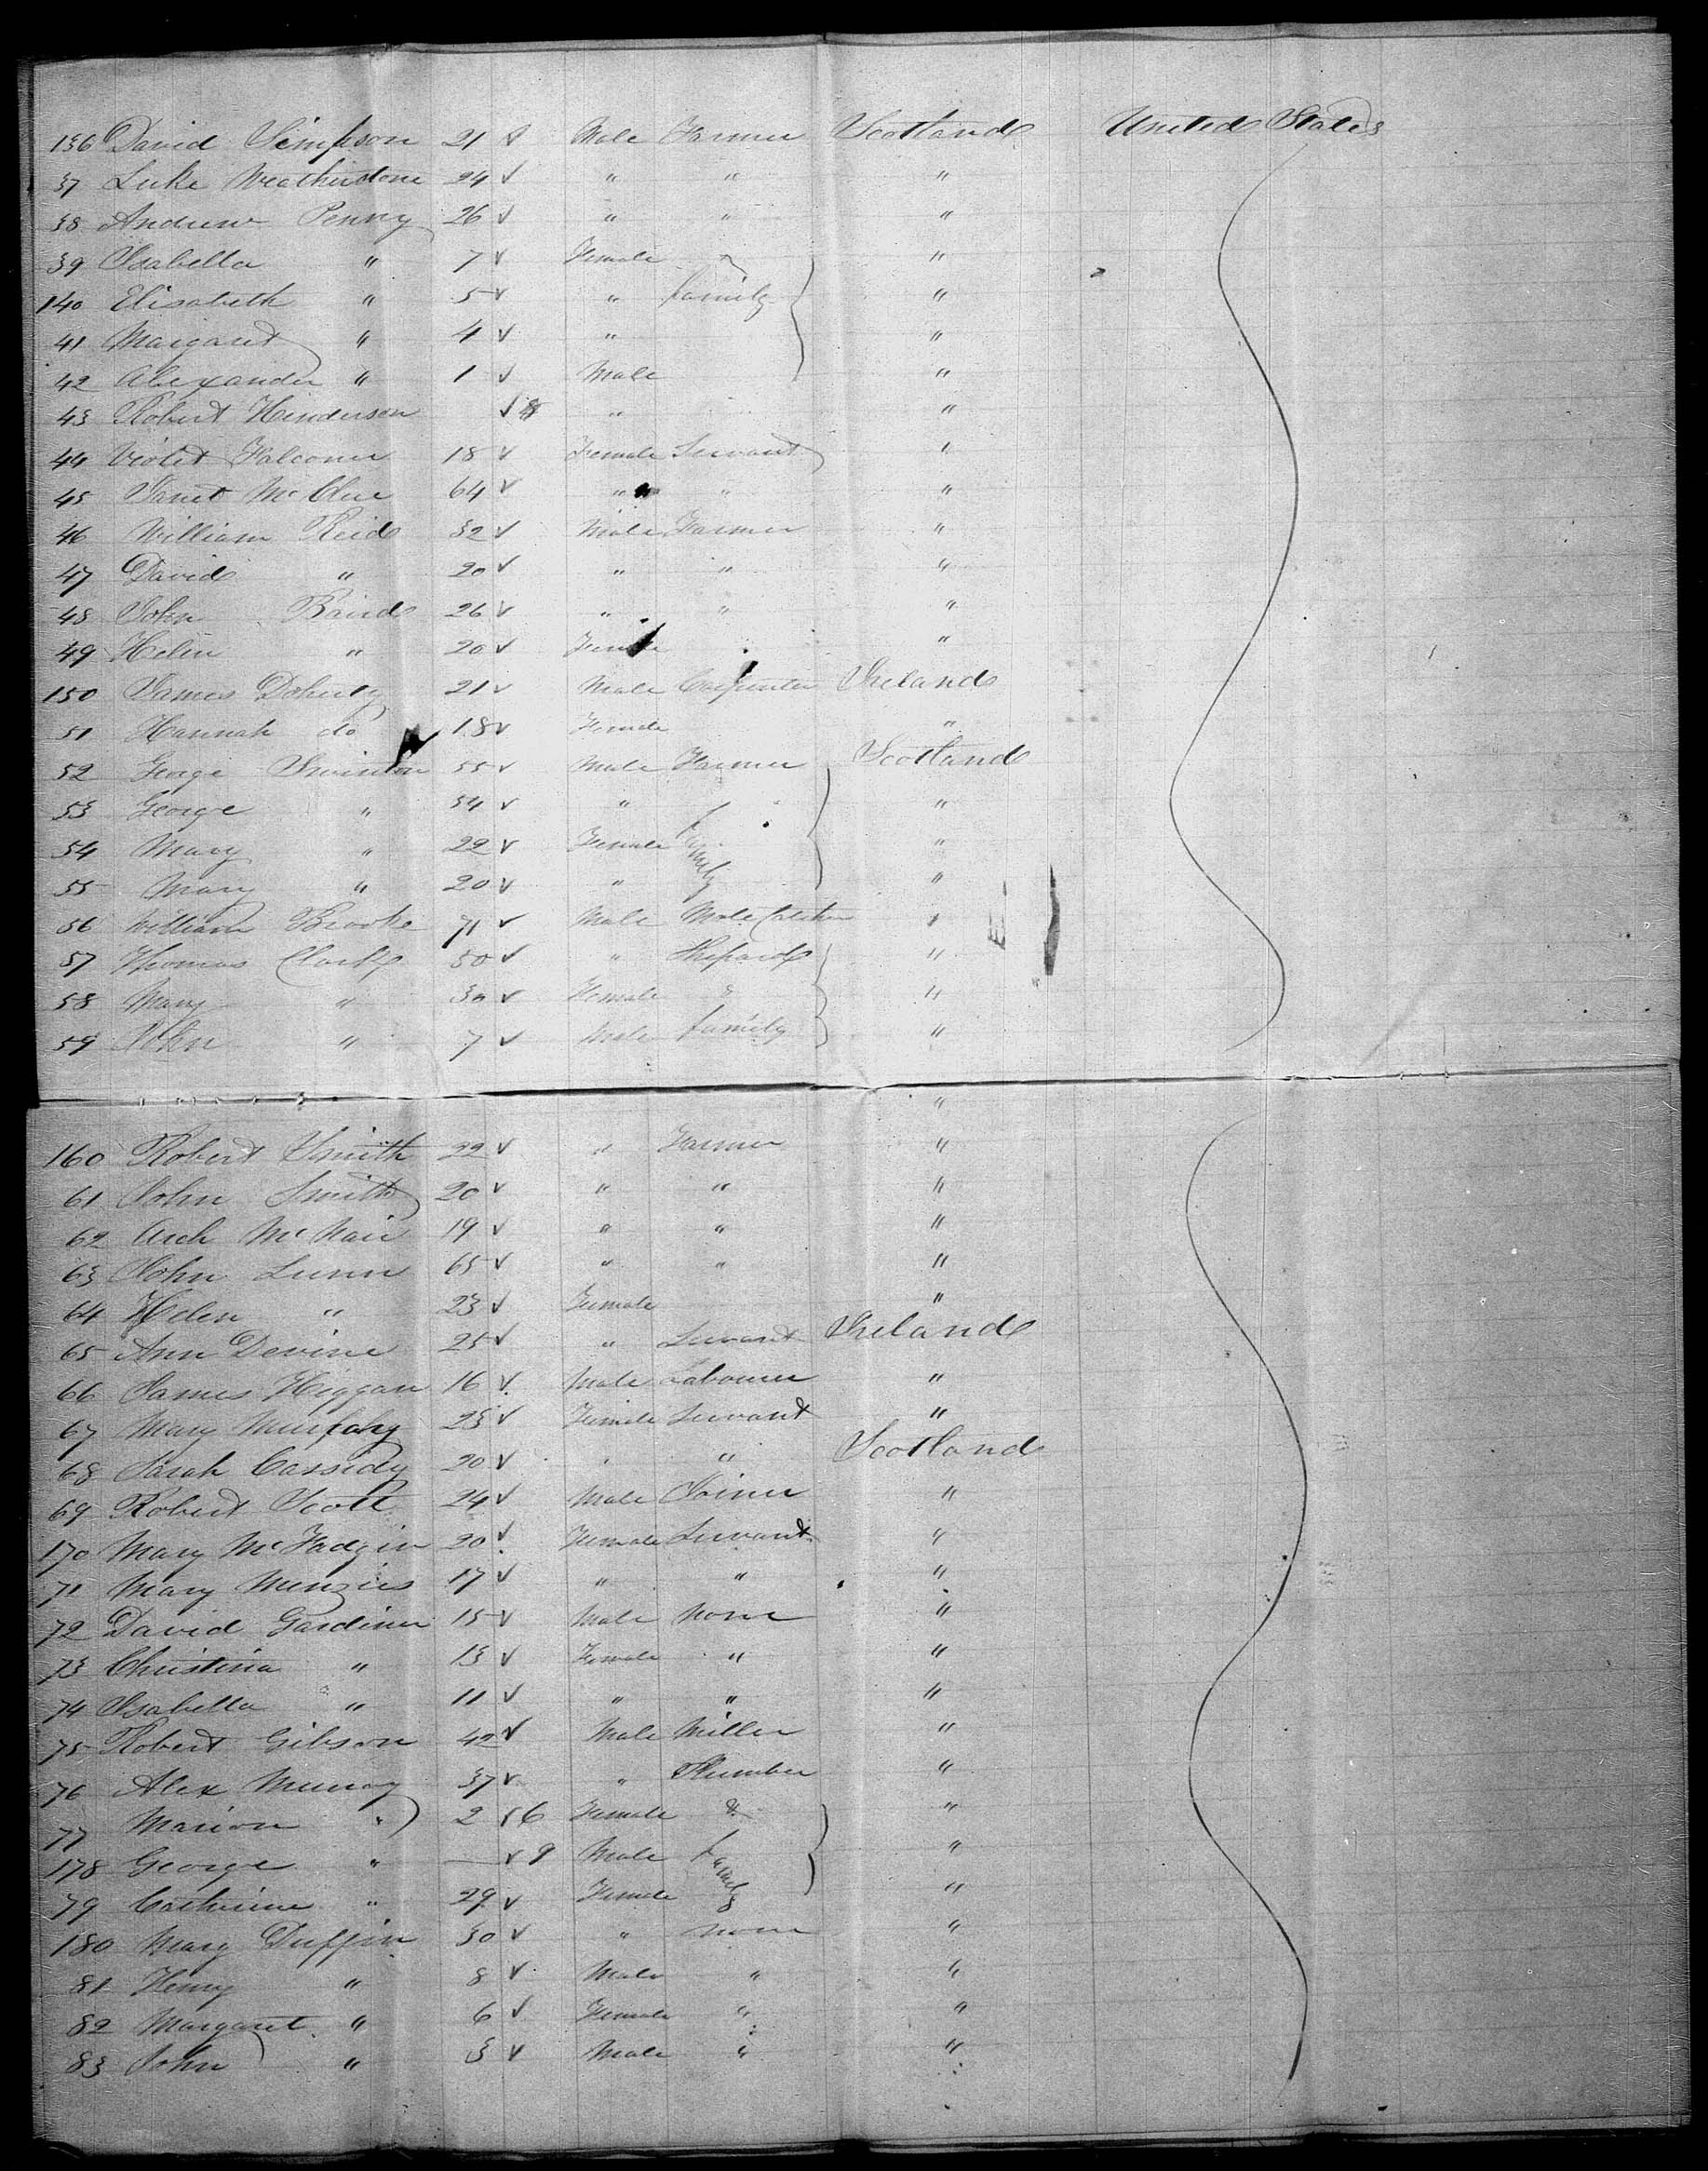 136 David Simpson 21 ✓ Male Farmer Scotland United States
37 Luke Weatherstone 24 ✓ " " "
38 Andrew Penny 26 ✓ " " "
39 Isabella " 7 ✓ Female & "
140 Elisabeth " 5 ✓ " family "
41 Margaret " 4 ✓ " "
42 Alexander " 1 ✓ Male "
43 Robert Henderson ✓ 8 " "
44 Violet Falconer 18 ✓ Female Servant "
45 Janet McClue 64 ✓ " " "
46 William Reid 32 ✓ Male Farmer "
47 David " 20 ✓ " " "
48 John Baird 26 ✓ " " "
49 Helen " 20 ✓ Female "
150 James Doherty 21 ✓ Male Carpenter Ireland
51 Hannah do 18 ✓ Female "
52 George Swinton 55 ✓ Male Farmer Scotland
53 George " 34 ✓ " "
54 Mary " 22 ✓ Female family "
55 Mary " 20 ✓ " "
56 William Brooke 71 ✓ Male Mole Catcher "
57 Thomas Clark 50 ✓ " Shepard "
58 Mary " 30 ✓ Female & "
59 John " 7 ✓ Male family "
"
160 Robert Smith 22 ✓ " Farmer "
61 John Smith 20 ✓ " " "
62 Arch McNair 19 ✓ " " "
63 John Lunn 65 ✓ " " "
64 Helen " 23 ✓ Female "
65 Ann Devine 25 ✓ " Servant Ireland
66 James Higgan 16 ✓ Male Labourer "
67 Mary Murphy 23 ✓ Female Servant "
68 Sarah Cassidy 20 ✓ " " Scotland
69 Robert Scott 24 ✓ Male Joiner "
170 Mary McFadgin 20 ✓ Female Servant "
71 Mary Menzies 17 ✓ " " "
72 David Gardiner 15 ✓ Male None "
73 Christina " 13 ✓ Female " "
74 Isabella " 11 ✓ " " "
75 Robert Gibson 42 ✓ Male Miller "
76 Alex Murray 37 ✓ " Plumber "
77 Marion " 2 ✓ 6 Female & "
178 George " — ✓ 9 Male family "
79 Catherine " 29 ✓ Female "
180 Mary Duffin 30 ✓ " None "
81 Henry " 8 ✓ Male " "
82 Margaret " 6 ✓ Female " "
83 John " 3 ✓ Male " "